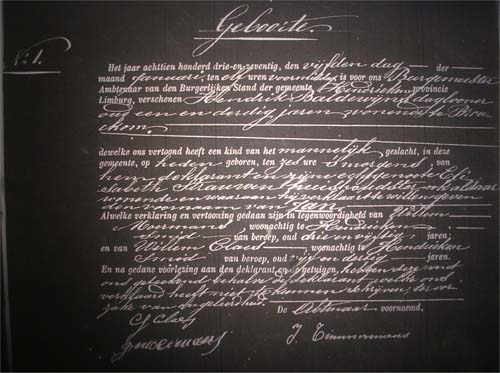 Geboorte.
N: 1.
Het jaar achttien honderd drie-en-zeventig, den vijfden dag der
maand Januari, ten elf uren voormiddag is voor ons Burgemeester
Ambtenaar van den Burgerlijken Stand der gemeente Hendrieken provincie
Limburg, verschenen Hendrik Baldewijns daglooner
oud een en dertig jaren wonende te Brou
kom.
dewelke ons vertoond heeft een kind van het mannelijk geslacht, in deze
gemeente, op heden geboren, ten zes ure S'morgens, van
hem deklarant en zijne echtgenoote Eli
sabeth Strauven ook aldaar
wonende en waaraan hij verklaart te willen geven
den voornaam van Jan.
Alwelke verklaring en vertooning gedaan zijn in tegenwoordigheid van Willem
Moermans, woonachtig te Hendrieken
Smid van beroep, oud drie en vijftig jaren;
en van Willem Claes, woonachtig te Hendrieken
Smid van beroep, oud vijf en dertig jaren.
En na gedane voorlezing aan den deklarant en getuigen, hebben deze met
ons geteekend behalve de deklarant welke ons
verklaard heeft niet te kunnen schrijven, ter oor
zake van ongeleerdheid.
De Ambtenaar voornoemd,
G Claes
J. Timmermans